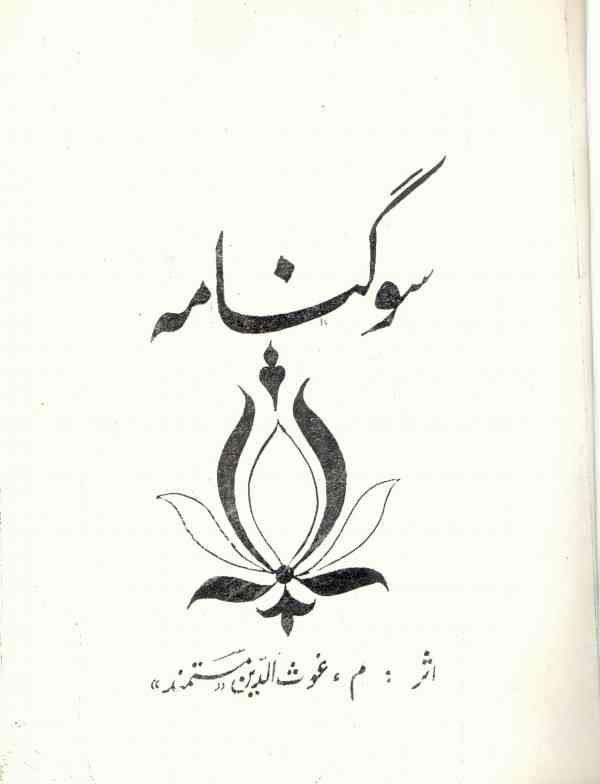 سوگنامه
اثر : م ، غوث الدّین «مستمند»